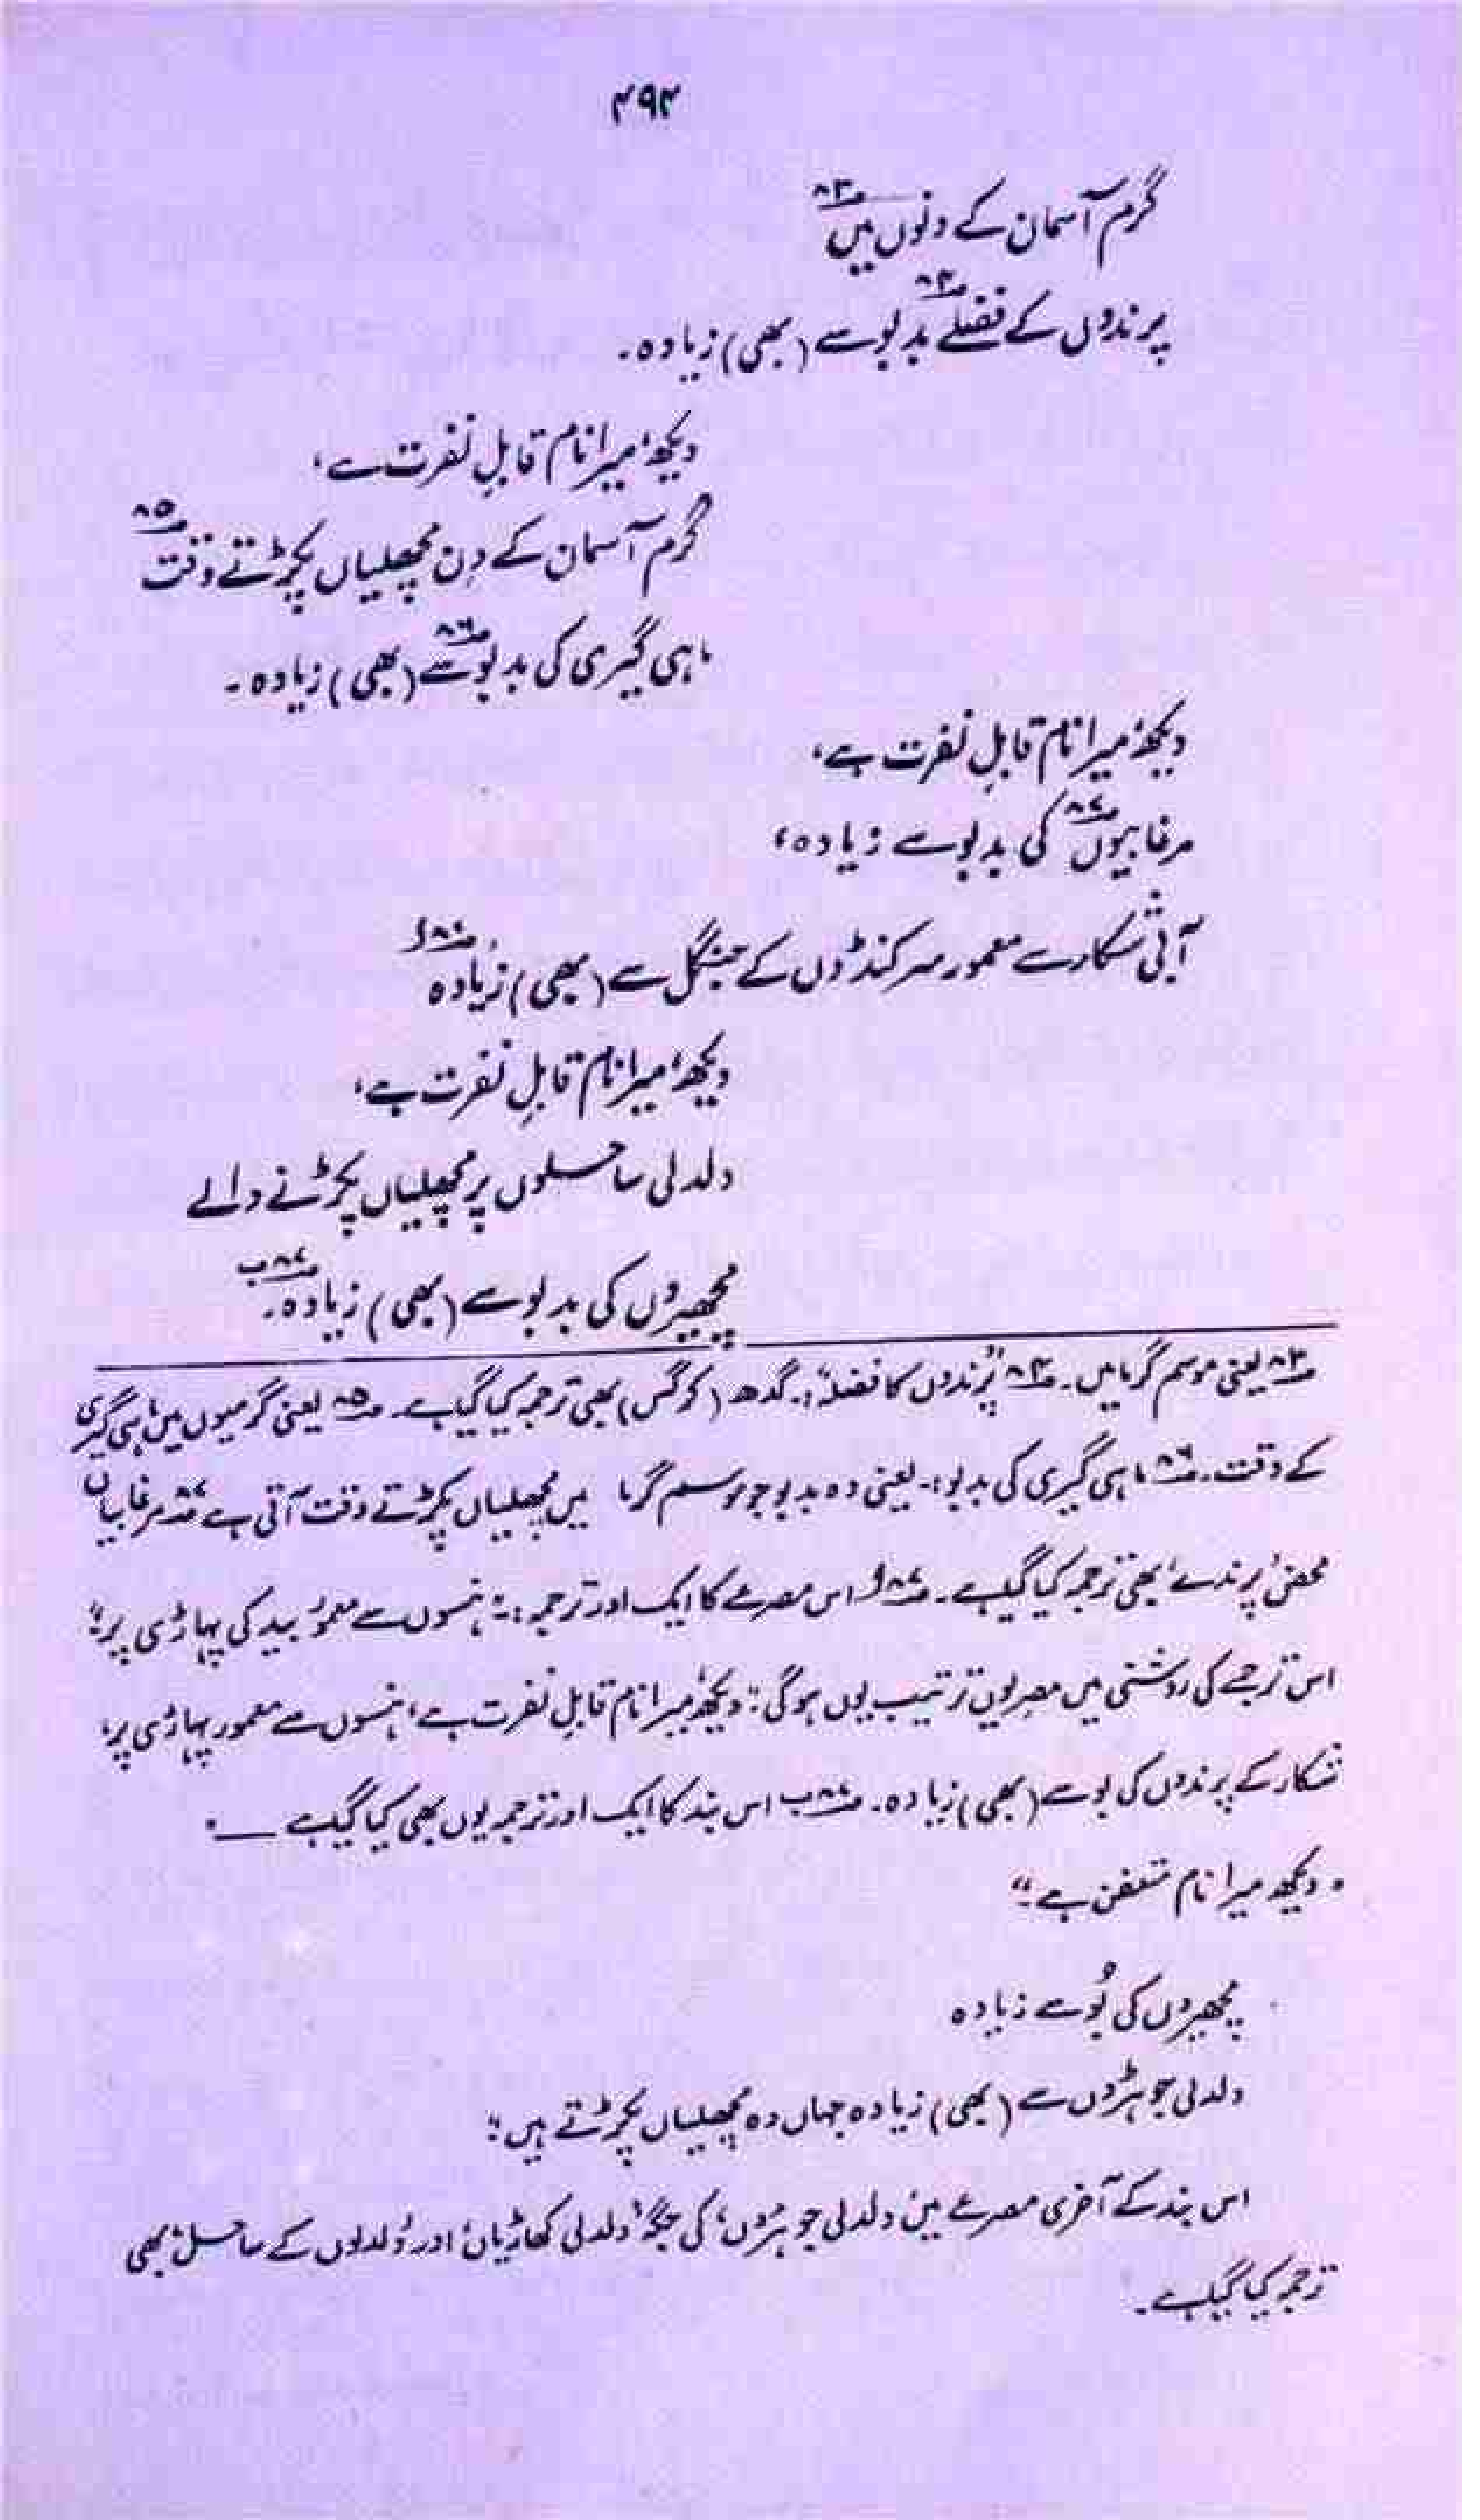 ۴۹۴
گرم آسمان کے دنوں میں ۸۳
پرندوں کے فضلے ۸۴ بدبو سے (بھی) زیادہ۔
دیکھ، میرا نام قابلِ نفرت ہے،
گرم آسمان کے دن مچھلیاں پکڑتے وقت ۸۵
ماہی گیری کی بدبو ۸۶ سے (بھی) زیادہ۔
دیکھ، میرا نام قابلِ نفرت ہے،
مرغابیوں ۸۷ کی بدبو سے زیادہ،
آبی شکار سے معمور سرکنڈوں کے جنگل سے (بھی) زیادہ ۸۷ا
دیکھ، میرا نام قابلِ نفرت ہے،
دلدلی ساحلوں پر مچھلیاں پکڑنے والے
مچھیروں کی بدبو سے (بھی) زیادہ۔ ۸۷ب
۸۳ یعنی موسم گرما میں۔ ۸۴ "پرندوں کا فضلہ":۔ گدھ (کرگس) بھی ترجمہ کیا گیا ہے۔ ۸۵ یعنی گرمیوں میں ماہی گیری
کے وقت۔ ۸۶ ماہی گیری کی بدبو:۔ یعنی وہ بدبو جو موسم گرما میں مچھلیاں پکڑتے وقت آتی ہے ۸۷ مرغابیاں
محض 'پرندے' بھی ترجمہ کیا گیا ہے۔ ۸۷ا اس مصرعے کا ایک اور ترجمہ:۔ "ہنسوں سے معمور بید کی پہاڑی پر"
اس ترجمے کی روشنی میں مصرعوں ترتیب یوں ہوگی: "دیکھ، میرا نام قابلِ نفرت ہے، ہنسوں سے معمور پہاڑی پر،
شکار کے پرندوں کی بو سے (بھی) زیادہ۔ ۸۷ب اس بند کا ایک اور ترجمہ یوں بھی کیا گیا ہے ــــ
"دیکھ میرا نام متعفن ہے"
مچھیروں کی بُو سے زیادہ
دلدلی جوہڑوں سے (بھی) زیادہ جہاں وہ مچھلیاں پکڑتے ہیں"
اس بند کے آخری مصرعے میں 'دلدلی جوہڑوں' کی جگہ 'دلدلی کھاڑیاں' اور 'دلدلوں کے ساحل' بھی
ترجمہ کیا گیا ہے۔